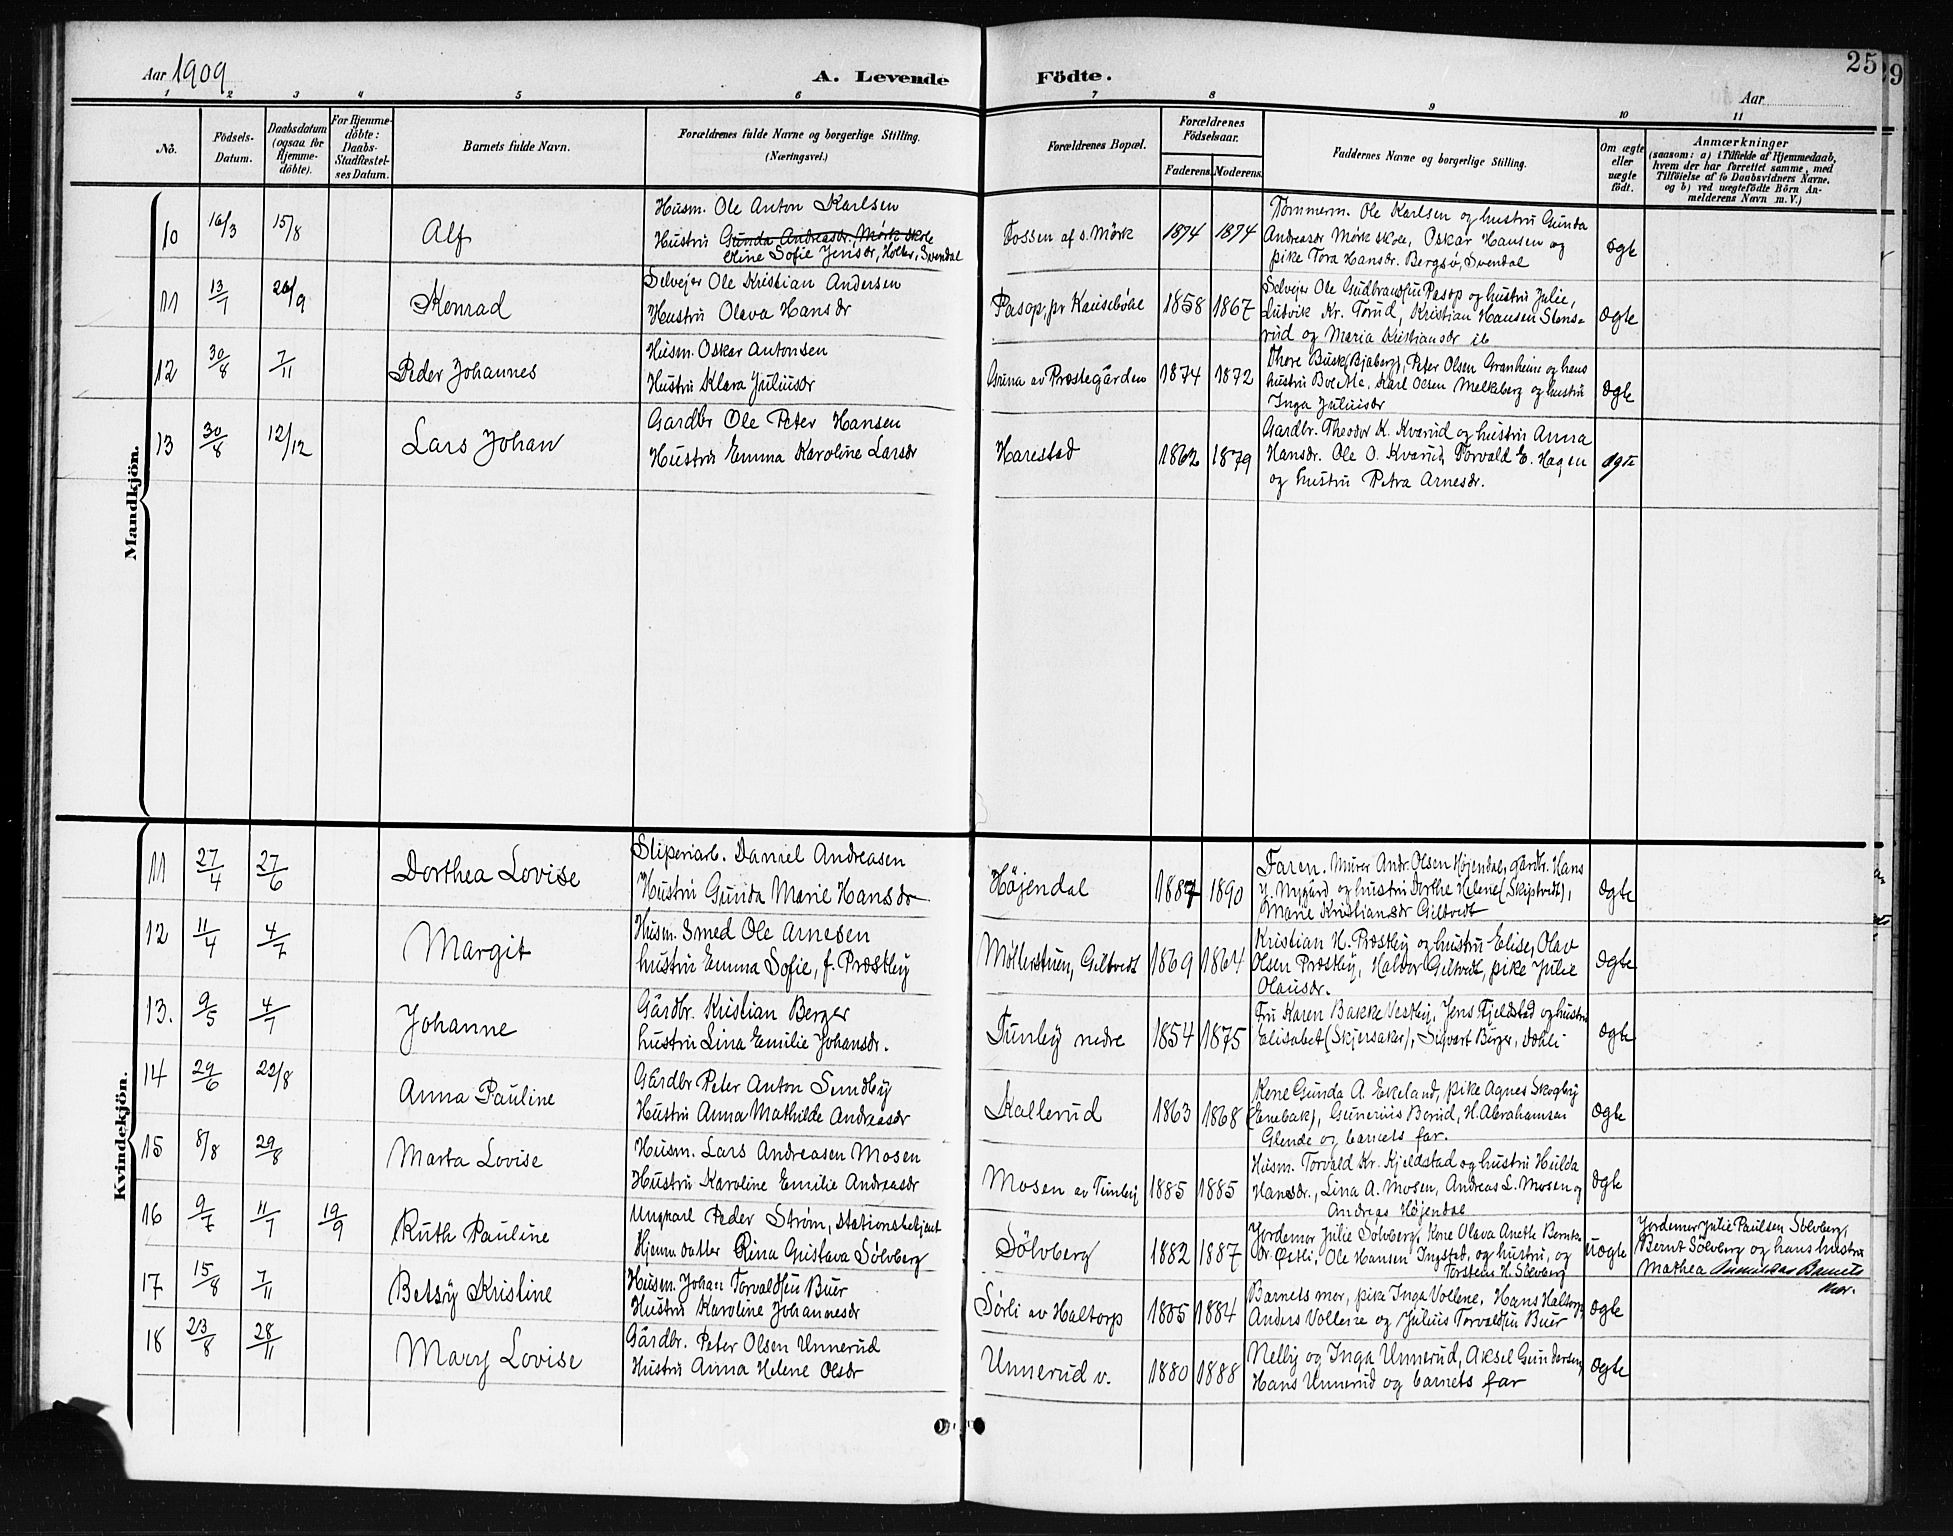 Aar 1909
A. Levende Födte.
25
29
Aar
1 2 3 4 5 6 7 8 9 10 11
No.
Födsels-Datum.
Daabsdatum (ogsaa for Hjemme-döbte).
For Hjemme-döbte: Daabs-Stadfæstel-ses Datum.
Barnets fulde Navn.
Forældrenes fulde Navne og borgerlige Stilling.
(Næringsvei.)
Forældrenes Bopæl.
Forældrenes Födselsaar.
Faderens. Moderens.
Faddernes Navne og borgerlige Stilling.
Om ægte eller uægte födt.
Anmærkninger
(saasom: a) i Tilfælde af Hjemmedaab,
hvem der har forrettet samme, med
Tilföielse af to Daabsvidners Navne,
og b) ved uægtefödte Börn An-
melderens Navn m. V.)
Mandkjön.
10 16/3 15/8 Alf
Husm. Ole Anton Karlsen
Hustru Gunda Andreasdr. Mørk skole
Oline Sofie Jensdr, Holter, Svendal
Fossen af s. Mørk 1874 1874
Tømmerm. Ole Karlsen og hustru Gunda
Andreasdr Mørk skole, Oskar Hansen og
pike Tora Hansdr. Bergsø, Svendal
ægte
11 13/7 26/9 Konrad
Selvejer Ole Kristian Andersen
Hustru Olava Hansdr
Pasop, pr Kausebøhl 1858 1867
Selvejer Ole Gudbrandsen Pasop og hustru Julie,
Ludvik Kr. Torud, Kristian Hansen Stens-
rud og Maria Kristiansdr ib
ægte
12 30/8 7/11 Peder Johannes
Husm. Oskar Antonsen
Hustru Klara Juliusdr
Gruna av Præstegården 1874 1872
Thore Busk (Bjaberg), Peter Olsen Granheim og hans
hustru Bolette, Karl Olsen Melleberg og hustru
Inga Juliusdr
ægte
13 30/8 12/12 Lars Johan
Gardbr Ole Peter Hansen
Hustru Emma Karoline Larsdr
Harestad 1862 1879
Gardbr. Theodor K. Kvarud og hustru Anna
Hansdr. Ole O. Kvarud, Torvald E. Hagen
og hustru Petra Arnesdr.
ægte
Kvindekjön.
11 27/4 27/6 Dorthea Lovise
Sliperiarb. Daniel Andreasen
Hustru Gunda Marie Hansdr
Højendal 1887 1890
Faren. Murer Andr. Olsen Højendal, Gardbr. Hans
J. Nygård og hustru Dorthe Helene (Skiptvedt),
Marie Kristiansdr Giltvedt
ægte
12 11/4 4/7 Margit
Husm. Smed Ole Arnesen
hustru Emma Sofie, f. Præstby
Møllerstuen, Giltvedt 1869 1864
Kristian H. Præstby og hustru Elise, Olav
Olsen Præstby, Halvor Giltvedt, pike Julie
Olausdr.
ægte
13. 9/5 4/7 Johanne
Gårdbr. Kristian Berger
hustru Lina Emilie Johansdr.
Tunby nedre 1854 1875
Fru Karen Bakke Vestby, Jens Fjeldstad og hustru
Elisabet (Skjersaker), Sigvart Berger, Dæhli
ægte
14 29/6 22/8 Anna Pauline
Gårdbr Peter Anton Sundby
Hustru Anna Mathilde Andreasdr
Kallerud 1863 1868
Kone Gunda A. Ekeland, pike Agnes Skogby
(Enebak), Gunerius Borud, H. Abrahamsen
Glende og barnets far.
ægte
15 8/8 29/8 Marta Lovise
Husm. Lars Andreasen Mosen
Hustru Karoline Emilie Andreasdr
Mosen av Tunby 1885 1885
Husm. Torvald Kr. Kjeldstad og hustru Hulda
Hansdr., Lina A. Mosen, Andreas L. Mosen og
Andreas Højendal
ægte
16 9/7 11/7 19/9 Ruth Pauline
Ungkarl Peder Strøm, Stationsbetjent
Hjemm. datter Rina Gustava Sølvberg
Sölvberg 1882 1887
Jordemor Julie Sølvberg, Kone Olava Anette Bernts-
dr. Østli, Ole Hansen Ingstad, og hustru, og
Torstein H. Sølvberg
uægte
Jordemor Julie Paulsen Sølvberg,
Bernt Sölvberg og hans hustru
Mathea Barnets
Mor.
17 15/8 7/11 Betsy Kristine
Husm. Johan Torvaldsen Buer
Hustru Karoline Johannesdr
Sørli av Haltorp 1885 1884
Barnets mor, pike Inga Vollene, Hans Haltorp
Anders Vollene og Julius Torvaldsen Buer
ægte
18 23/8 28/11 Mary Lovise
Gårdbr. Peter Olsen Unnerud
Hustru Anna Helene Olsdr
Unnerud v. 1880 1888
Nelly og Inga Unnerud, Aksel Gundersen,
Hans Unnerud og barnets far
ægte